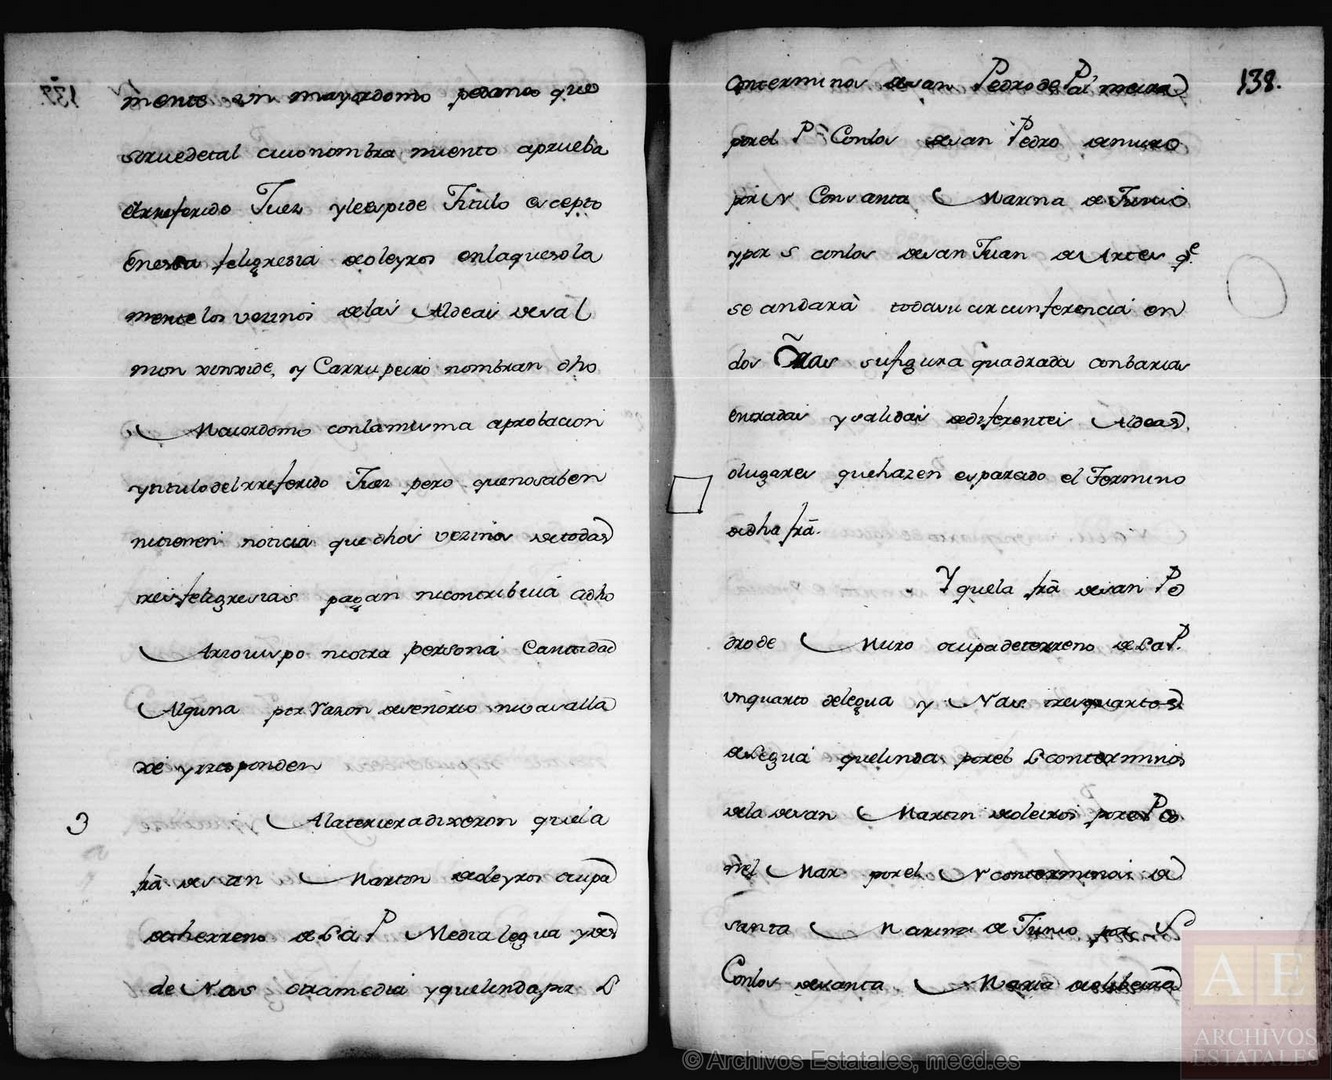 mente un mayordomo pedaneo que
sirue de tal cuio nombra miento aprueba
el rreferido Juez y le espide Titulo escepto
en esta feligresia de oleyros en la que sola
mente los vezinos de las Aldeas de val
mon xinxide, y Carru peiro nombran dho
Maiordomo con la misma aprobacion
y titulo del rreferido Juez pero que no saben
ni tienen noticia que dhos vezinos de todas
tres feligresias pagan ni contribuia a dho
Arzouispo ni otra persona Cantidad
Alguna por razon de senorio ni vasalla
xe y rresponden
3 A la terzera dixeron que la
frã de san Martin de oleyros ocupa
de therreno de L a P Media legua y de
de N a s otra media y que linda por L
138.
Con terminos de san Pedro de Pal meira
por el P Con los de san Pedro de muro
por N Con santa Marina de Junio
y por S con los de san Juan de Artes qe
se andarà toda su circunferencia en
dos Oras su figura quadrada con barias
entradas y salidas de diferentes Aldeas,
o lugares que hazen esparzido el Termino
de dha frã.
Y que la frã de san Pe
dro de Muro ocupa de terreno de L a P.
un quarto de legua y N a s tres quartos
de legua que linda por el L con terminos
de la de san Martin de oleiros por el P Co
n el Mar por el N con terminos de
santa Marina de Junio por S
Con los de santa Maria de Ribeira
© Archivos Estatales, mecd.es
A E
ARCHIVOS
ESTATALES